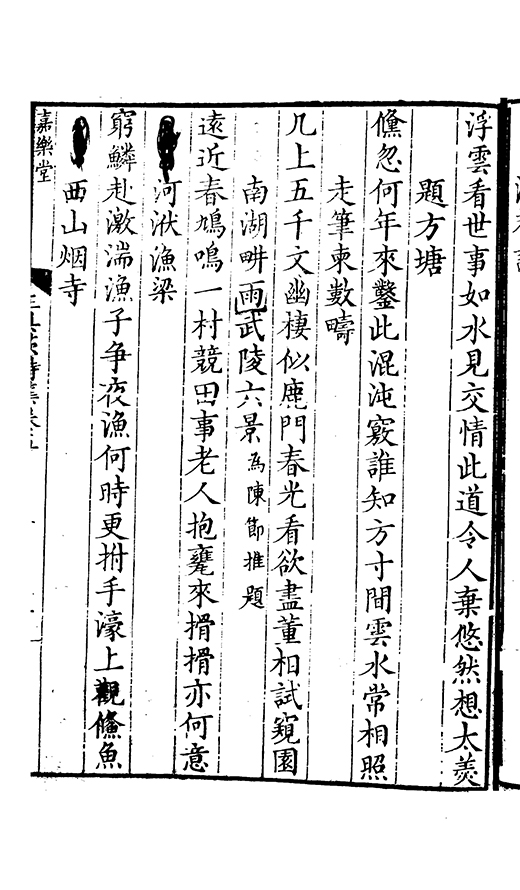 浮雲看世事如水見交情此道令人棄悠然想太羹
題方塘
儵忽何年來鑿此混沌竅誰知方寸間雲水常相照
走筆柬數疇
几上五千文幽棲似鹿門春光看欲盡董相試窺園
南湖畊雨武陵六景為陳節推題
遠近春鳩鳴一村競田事老人抱甕來搰搰亦何意
河洑漁梁
窮鱗赴激湍漁子爭夜漁何時更拊手濠上觀儵魚
西山烟寺
嘉樂堂